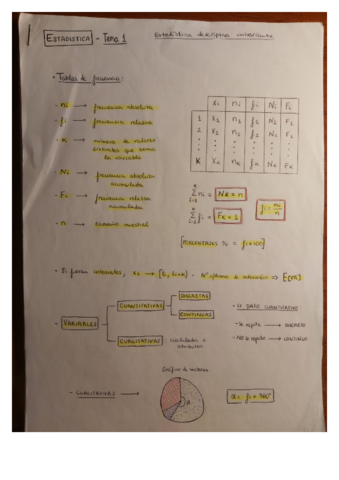 ESTADISTICA - Tema 1
Estadística descriptiva univariante
- Tablas de frecuencia:
- ni → frecuencia absoluta
- fi → frecuencia relativa
- K → número de valores distintos que toma la variable
- Ni → frecuencia absoluta acumulada
- Fi → frecuencia relativa acumulada
- n → tamaño muestral
xi ni fi Ni Fi
1 x1 n1 f1 N1 F1
2 x2 n2 f2 N2 F2
K xk nk fk Nk Fk
ni = NK = n
fi = FK = 1
fi = ni/n
[PORCENTAJES % = fi × 100]
- VARIABLES
CUANTITATIVAS
DISCRETAS
CONTINUAS
CUALITATIVAS
cualidades o atributos
- SI DATO CUANTITATIVO
- Se repite → DISCRETO
- NO se repite → CONTINUO
- CUALITATIVAS →
Gráfico de sectores
α = fi × 360°